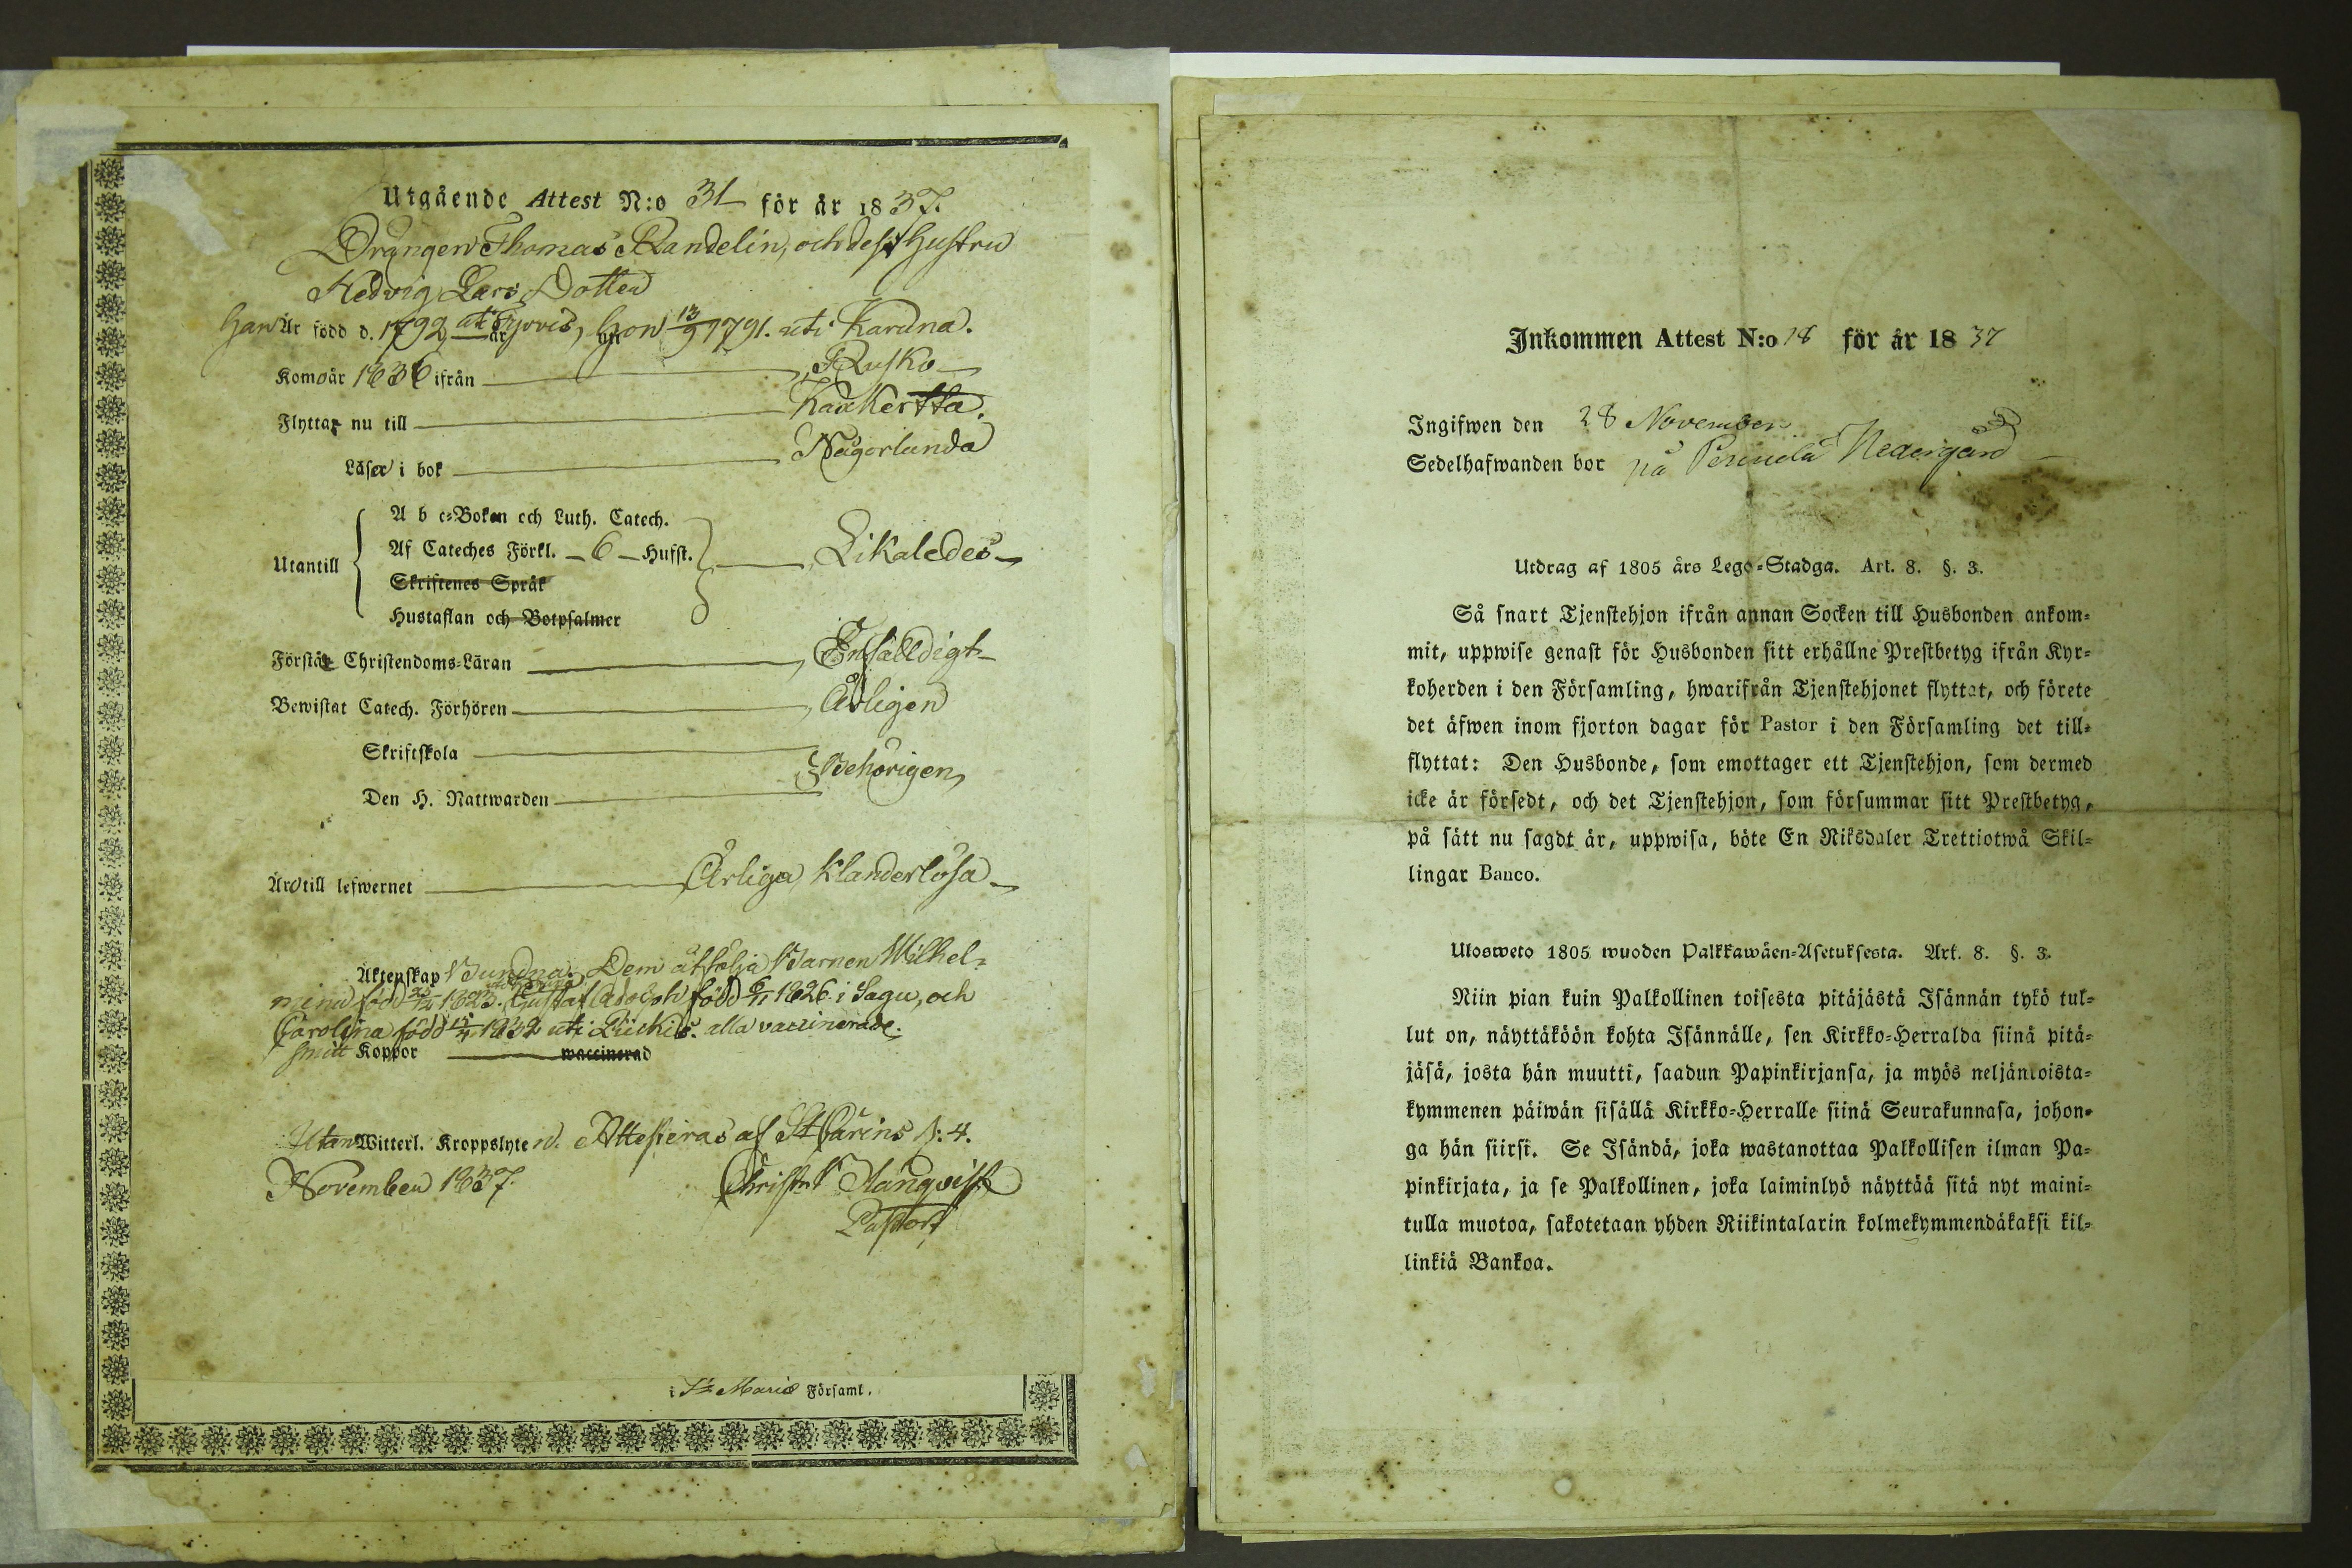 Utgående Attest N:o 31 för år 1837.
Drängen Thomas Randelin, och dess Hustru
Hedvig Lars Dotter
Han Är född d. 1792 uti Hon 13/9 1791. uti Karuna.
Kom år 1836 ifrån Rusko
Flyttar nu till Kakskertta.
Läser i bok Någorlunda
Utantill
A b c-Boken och Luth. Catech.
Af Cateches Förkl. 6 Hufst. Likaledes
Skriftenes Språk
Hustaflan och Botpsalmer
Förstår Christendoms-Läran Enfalldigt
Bewistat Catech. Förhören Årligen
Skriftskola
Behörigen
Den H. Nattwarden
Äro till lefwernet Ärliga, Klanderlösa
Äktenskap Bundna. Dem åtfölja Barnen Wilhel-
mina född 1823. Gustaf Adolph född 6/11 1826 i Sagu, och
Carolina född 1832 uti Piickis. alla vaccinerade.
Koppor waccinerad
Utan Witterl. Kroppslyten. Attesteras af St Carins d: 4.
November 1837. Christ.
Pastor
i S:t Mariæ Församl.
Inkommen Attest N:o 18 för år 1837
Ingifwen den 28 November
Sedelhafwanden bor på Nedergård
Utdrag af 1805 års Lego-Stadga. Art. 8. §. 3.
Så snart Tjenstehjon ifrån annan Socken till Husbonden ankom-
mit, uppwise genast för Husbonden sitt erhållne Prestbetyg ifrån Kyr-
koherden i den Församling, hwarifrån Tjenstehjonet flyttat, och förete
det äfwen inom fjorton dagar för Pastor i den Församling det till-
flyttat: Den Husbonde, som emottager ett Tjenstehjon, som dermed
icke är försedt, och det Tjenstehjon, som försummar sitt Prestbetyg,
på sätt nu sagdt är, uppwisa, böte En Riksdaler Trettiotwå Skil-
lingar Banco.
Ulosweto 1805 wuoden Palkkawäen-Asetuksesta. Art. 8. §. 3.
Niin pian kuin Palkollinen toisesta pitäjästä Isännän tykö tul-
lut on, näyttäköön kohta Isännälle, sen Kirkko-Herralda siinä pitä-
jäsä, josta hän muutti, saadun Papinkirjansa, ja myös neljäntoista-
kymmenen päiwän sisällä Kirkko-Herralle siinä Seurakunnasa, johon-
ga hän siirsi. Se Isändä, joka wastanottaa Palkollisen ilman Pa-
pinkirjata, ja se Palkollinen, joka laiminlyö näyttää sitä nyt maini-
tulla muotoa, sakotetaan yhden Riikintalarin kolmekymmendäkaksi kil-
linkiä Bankoa.